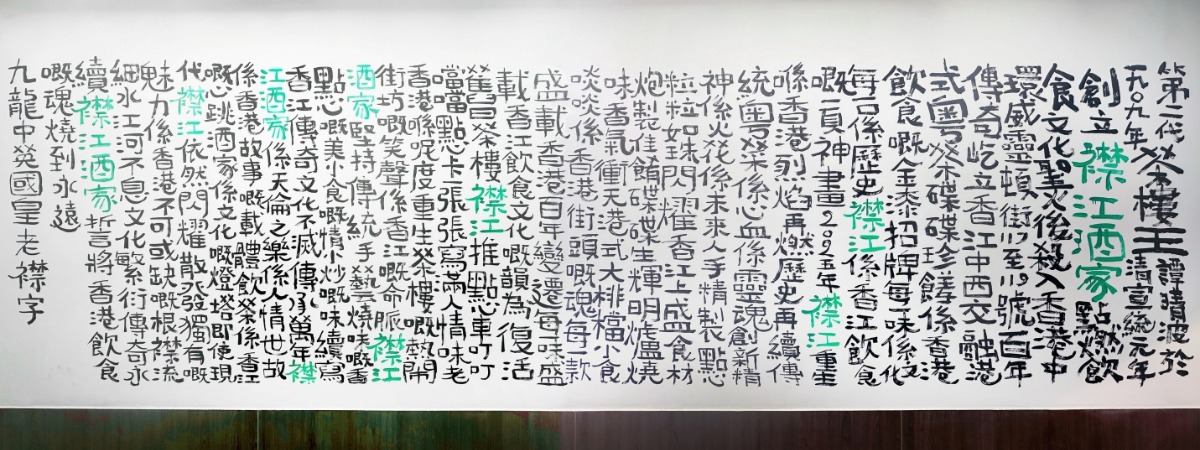 第一代茶樓王譚晴波於
一九〇九年清宣統元年
創立襟江酒家點燃飲
食文化聖火後殺入香港中
環威靈頓街117至119號百年
傳奇屹立香江中西交融港
式粵茶碟碟珍饈係香港
飲食嘅金漆招牌每一味係文化
每一口係歷史襟江係香江飲食
嘅一頁神畫2025年襟江重生
喺香港烈焰再燃歷史再續傳
統粵菜係心血係靈魂創新精
神係火花係未來人手精製點心
粒粒出味閃耀香江上盛食材
炮製佳餚碟碟生輝明爐燒
味香氣衝天港式大排檔小食
啖啖係香港街頭嘅魂每一款
盛載香港百年變遷每一味盛
載香江飲食文化嘅韻為復活
舊日茶樓襟江推點心車叮
噹噹點卡一張張寫滿人情味老
香港喺呢度重生茶樓嘅熱鬧
街坊嘅笑聲係香江嘅命脈襟江
酒家堅持傳統手藝燒味嘅香
點心嘅美小食嘅情小炒嘅味續寫
香江傳奇文化不滅傳承萬年襟
江酒家係天倫之樂係人情世故
係香港故事嘅載體飲茶係香江
嘅心跳酒家係文化嘅燈塔即使現
代襟江依然閃耀散發獨有嘅
魅力係香港不可或缺嘅根襟流
細水江河不息文化繁衍傳奇永
續襟江酒家誓將香港飲食
嘅魂燒到永遠
九龍中英國皇老襟字